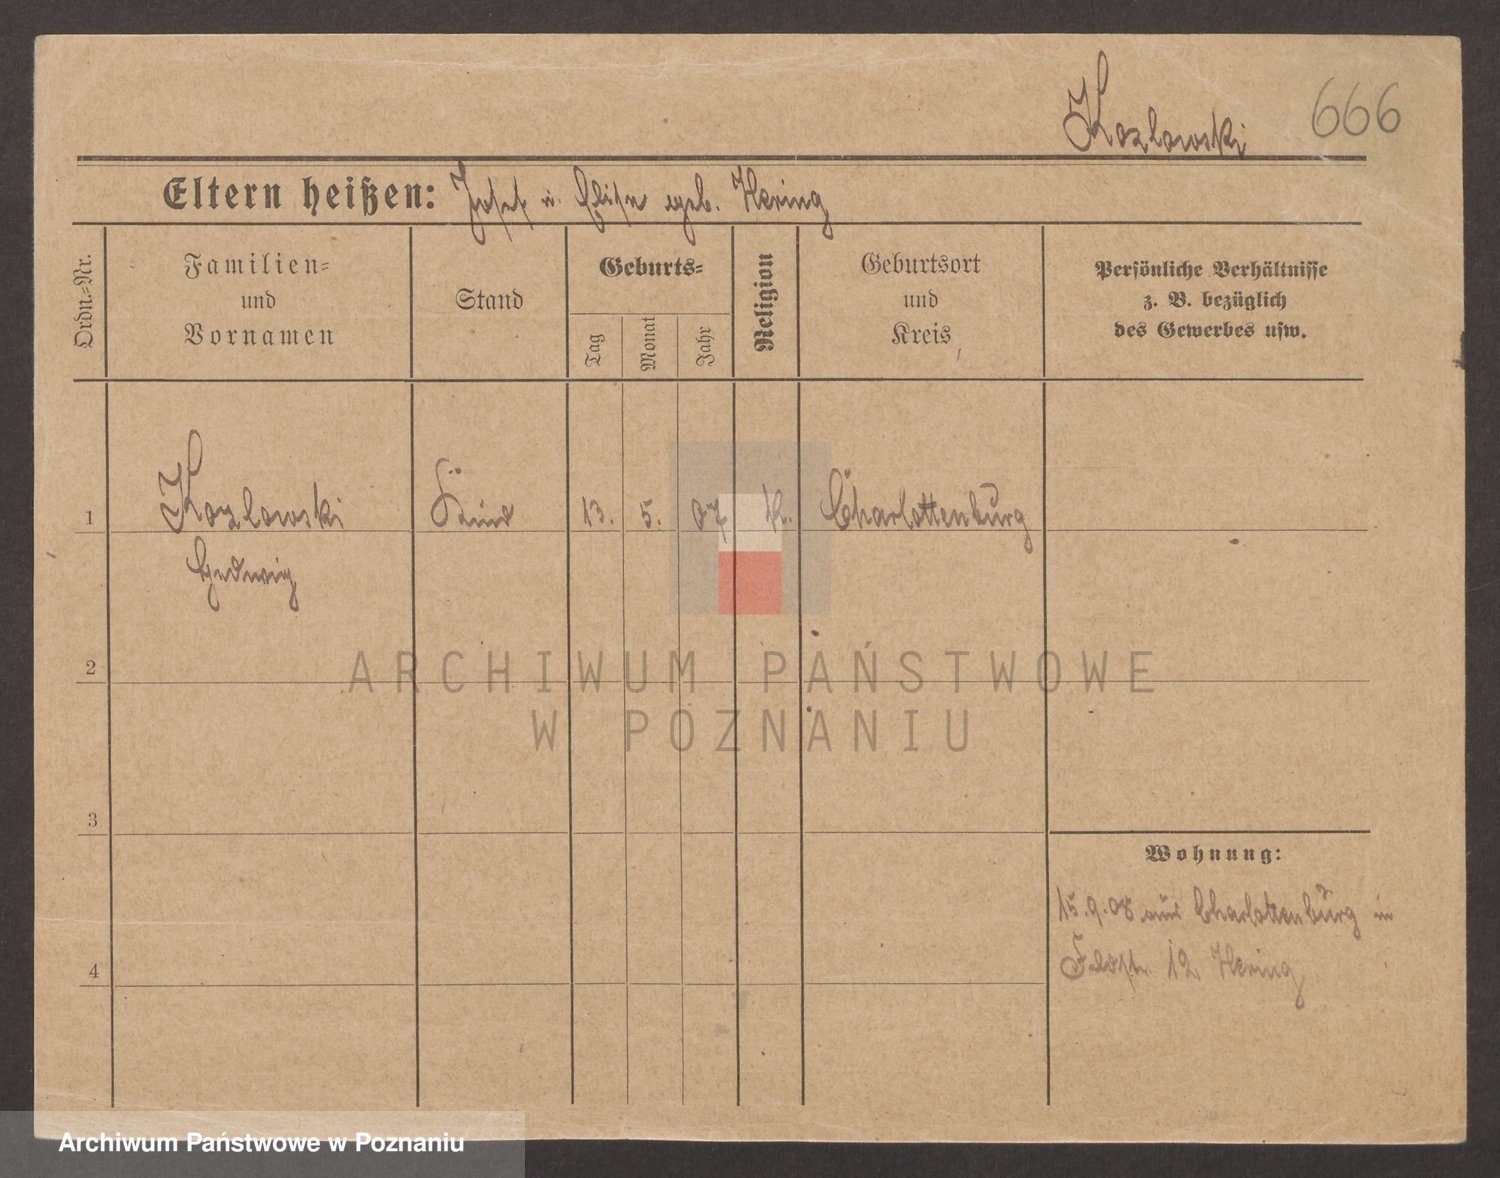 Kozlowski 666
Eltern heißen: Josef u. Elise geb. Hering
Ordn.-Nr.
Familien-
und
Vornamen
Stand
Geburts-
Tag
Monat
Jahr
Religion
Geburtsort
und
Kreis
Persönliche Verhältnisse
z. B. bezüglich
des Gewerbes usw.
1 Kozlowski Kind 13. 5. 07 K. Charlottenburg
Hedwig
2
ARCHIWUM PAŃSTWOWE
W POZNANIU
3
Wohnung:
15.9.08 aus Charlottenburg in
4 Feldstr 12 Hering
Archiwum Państwowe w Poznaniu